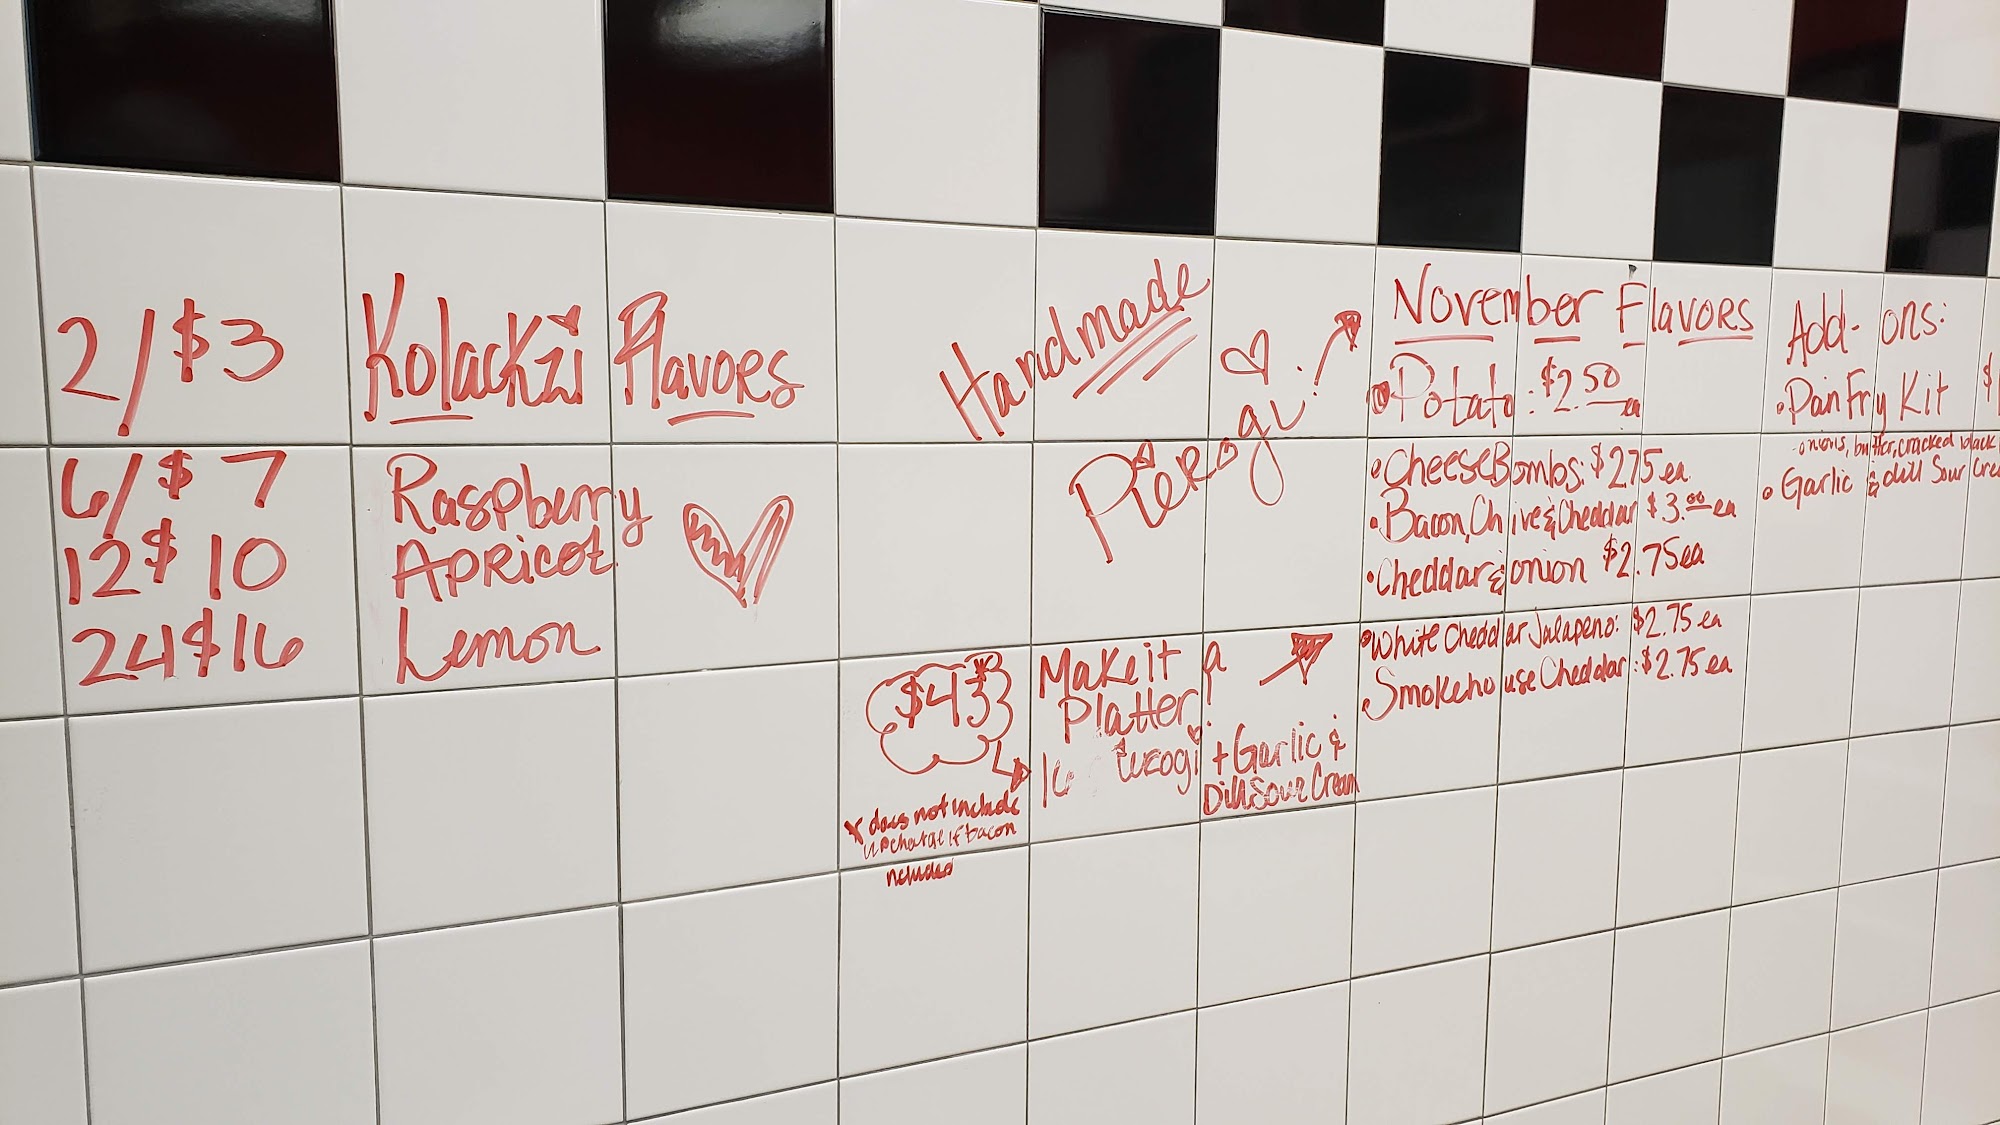 2/$3
6/$7
12$10
24$16
Kolackzi Flavors
Raspberry
Apricot
Lemon
Handmade
Pierogi
$43*
*does not include
upcharge if bacon
included
Make it a
Platter!
16 Pierogi + Garlic &
Dill Sour Cream
November Flavors
•Potato: $2.50 ea
•Cheese Bombs: $2.75 ea
•Bacon, Chive & Cheddar $3.00 ea
•Cheddar & onion $2.75 ea
•White Cheddar Jalapeno: $2.75 ea
•Smokehouse Cheddar: $2.75 ea
Add-ons:
•Pan Fry Kit
-onions, butter, cracked black
•Garlic & dill Sour